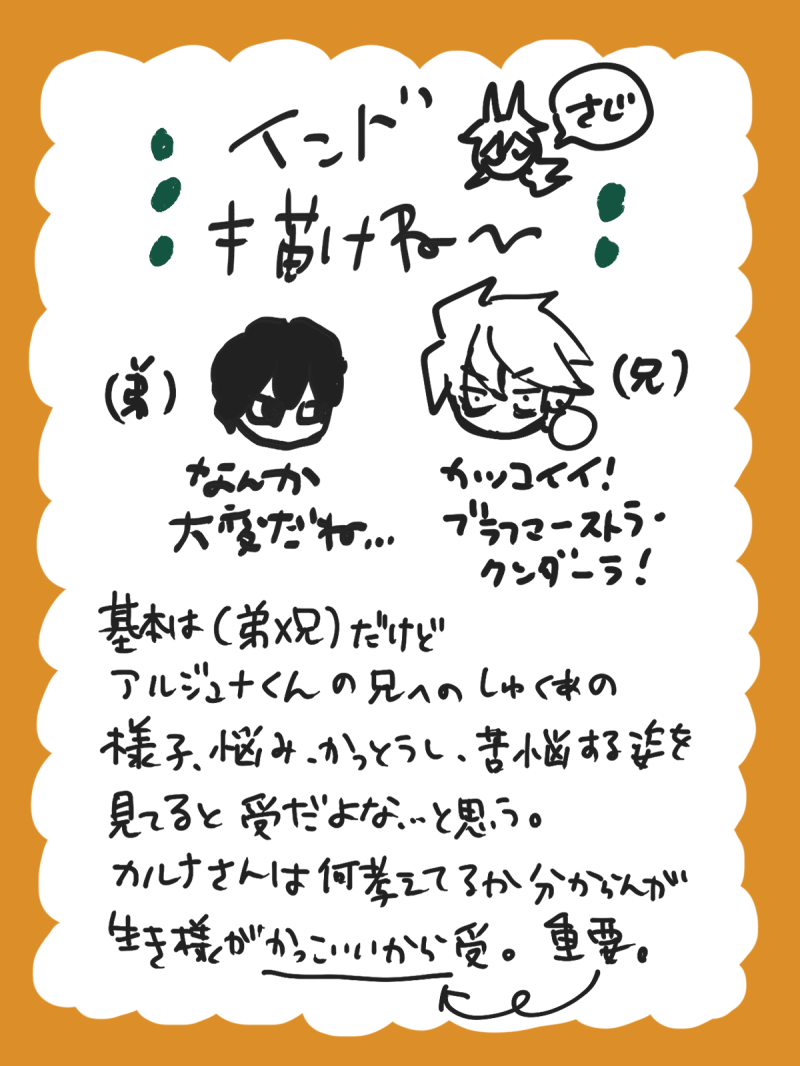 インド
さじ
キ描けね〜
(弟)
(兄)
なんか
大変だね...
カッコイイ!
ブラフマーストラ・
クンダーラ!
基本は(弟×兄)だけど
アルジュナくんの兄への しゅくあの
様子、悩み、かっとうし、苦悩する姿を
見てると 受だよな...と思う。
カルナさんは何考えてるか分からんが
生き様がかっこいいから受。重要。